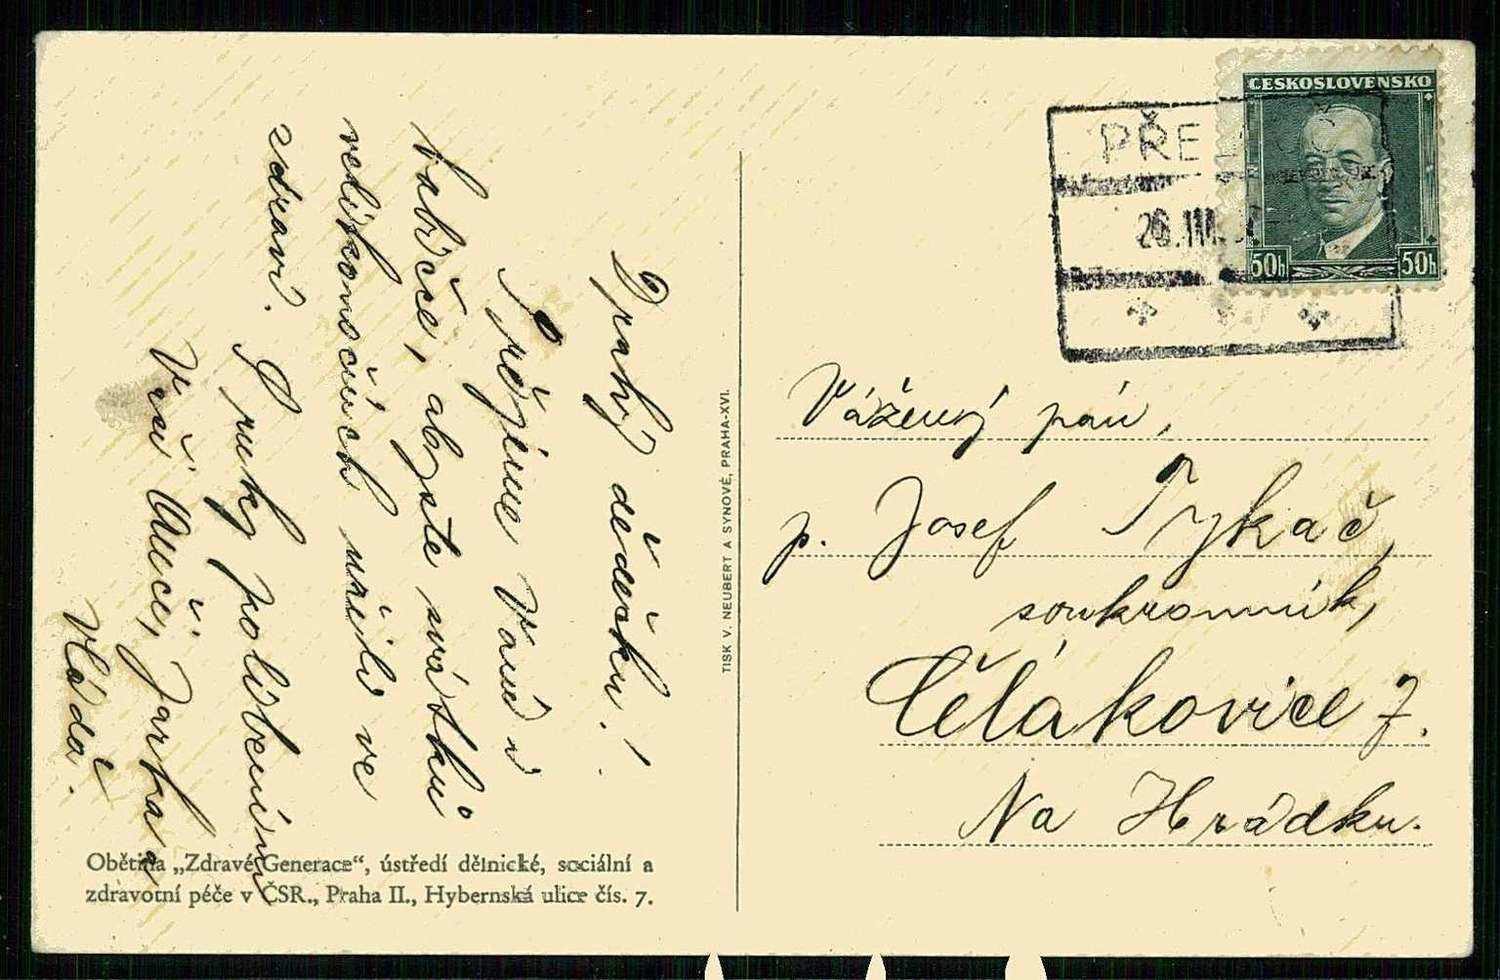 Drahý dědečku!
Přejeme Vám i
babičce, abyste svátků
velikonočních užili ve
zdraví. S ruky políbením
Vaši Anči, Jarka a
Vláďa.
Obětina „Zdravé Generace“, ústředí dělnické, sociální a
zdravotní péče v ČSR., Praha II., Hybernská ulice čís. 7.
TISK V. NEUBERT A SYNOVÉ, PRAHA-XVI.
ČESKOSLOVENSKO
50h 50h
26.III.
Vážený pán,
p. Josef Tykač,
soukromník,
Čelákovice 7.
Na Hrádku.